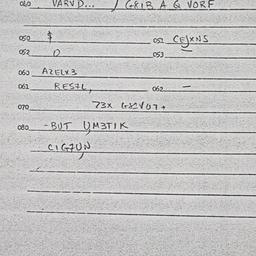 040 VARVD... / G81B A Q VORF
050 $ 051 CEJXNS
052 0 053
060 AZELX3
061 RES7L, 062 -
070 73X
080 -BUT UM3TIK
CIG7UN